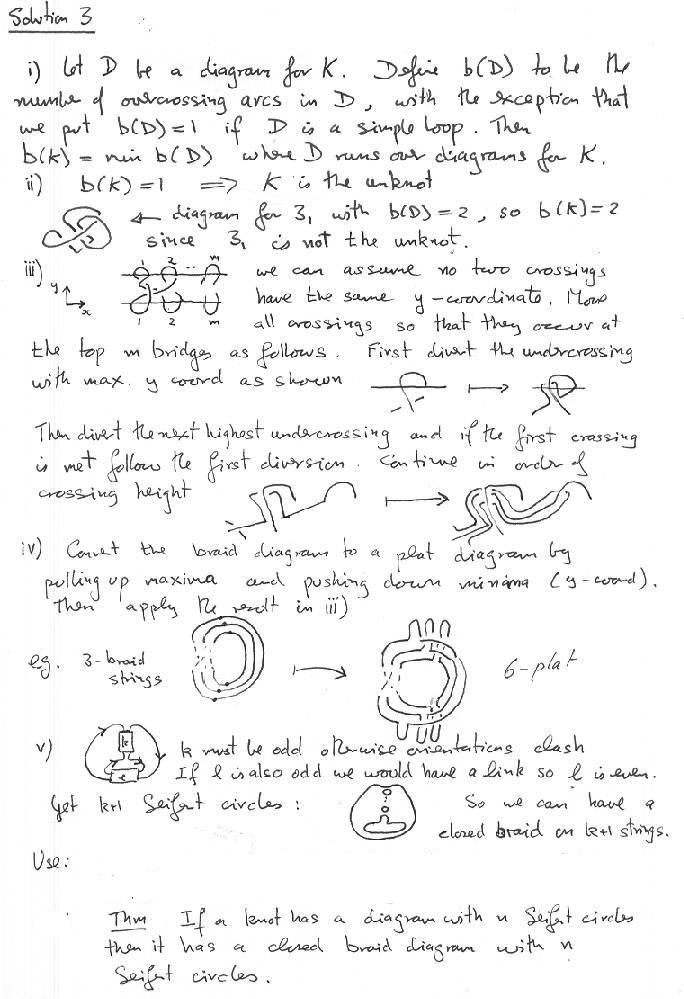 Solution 3
i) Let D be a diagram for K. Define b(D) to be the
number of overcrossing arcs in D, with the exception that
we put b(D)=1 if D is a simple loop. Then
b(K) = min b(D) where D runs over diagrams for K.
ii) b(K)=1 ⟹ K is the unknot
← diagram for 3₁ with b(D)=2, so b(K)=2
since 3₁ is not the unknot.
iii) y x 1 2 m 1 2 m we can assume no two crossings
have the same y-coordinate. Move
all crossings so that they occur at
the top m bridges as follows. First divert the undercrossing
with max. y coord as shown ⟼
Then divert the next highest undercrossing and if the first crossing
is met follow the first diversion. Continue in order of
crossing height ⟼
iv) Convert the braid diagram to a plat diagram by
pulling up maxima and pushing down minima (y-coord).
Then apply the result in iii)
eg. 3-braid ⟼ 6-plat
strings
v) k l k must be odd otherwise orientations clash
If l is also odd we would have a link so l is even.
Get k+1 Seifert circles: So we can have a
closed braid on k+1 strings.
Use:
Thm If a knot has a diagram with n Seifert circles
then it has a closed braid diagram with n
Seifert circles.